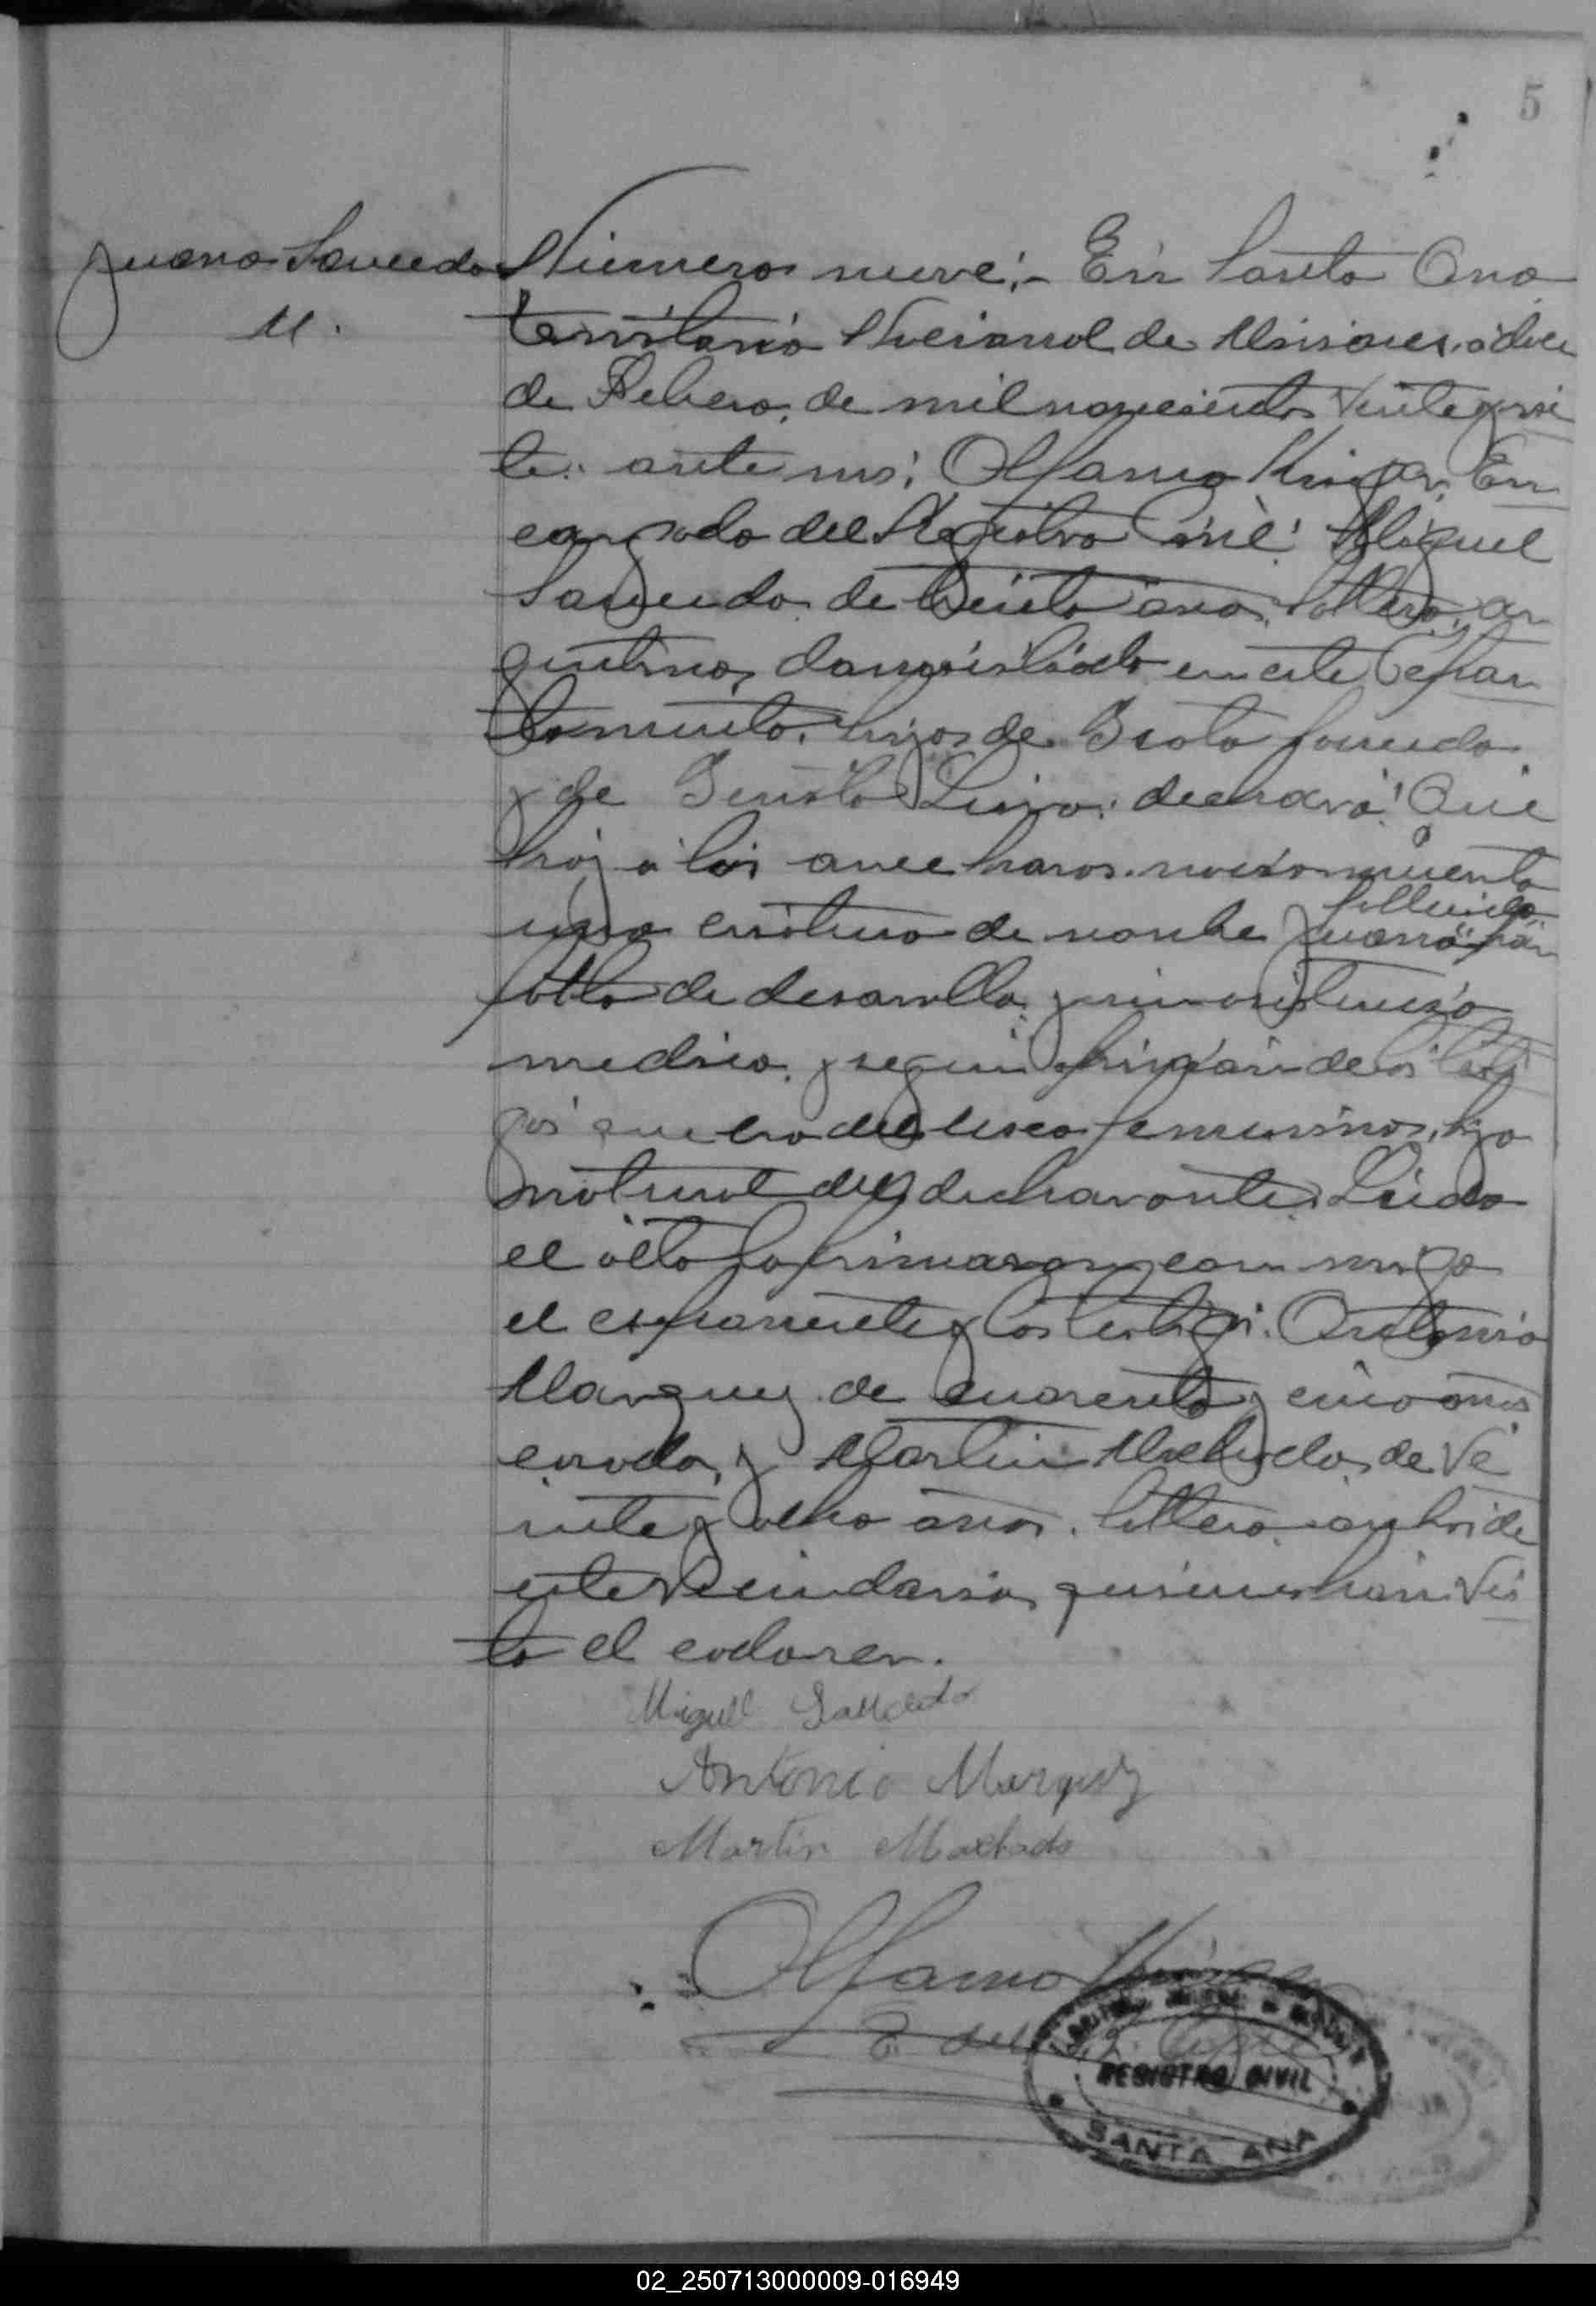 5
Juana Saucedo
M.
Número nueve:- En Santa Ana
territorio Nacional de Misiones, a doce
de Febrero, de mil novecientos veinte y sie
te: ante mi; En
cargado del Registro Civil: Miguel
Saucedo, de treinta años, soltero, ar
gentino, domiciliado en este Depar
tamento, hijo de Saucedo
y de declaró: Que
hoy a las once horas
una criatura de nombre Juana
fallecido
falta de desarrollo y sin asistencia
medica, y según de los testi
gos que era del sexo femenino, hija
natural del declarante. Leida
el acta la firmaron conmigo
el exponente y los testigos: Antonio
Marquez de cuarenta y cinco años
casado, y Martin Machado, de ve
inte y ocho años, soltero, ambos de
este vecindario, quienes han vis
to el cadaver.
Miguel Saucedo
Antonio Marquez
Martin Machado
E. del
REGISTRO CIVIL
SANTA ANA
02_250713000009-016949